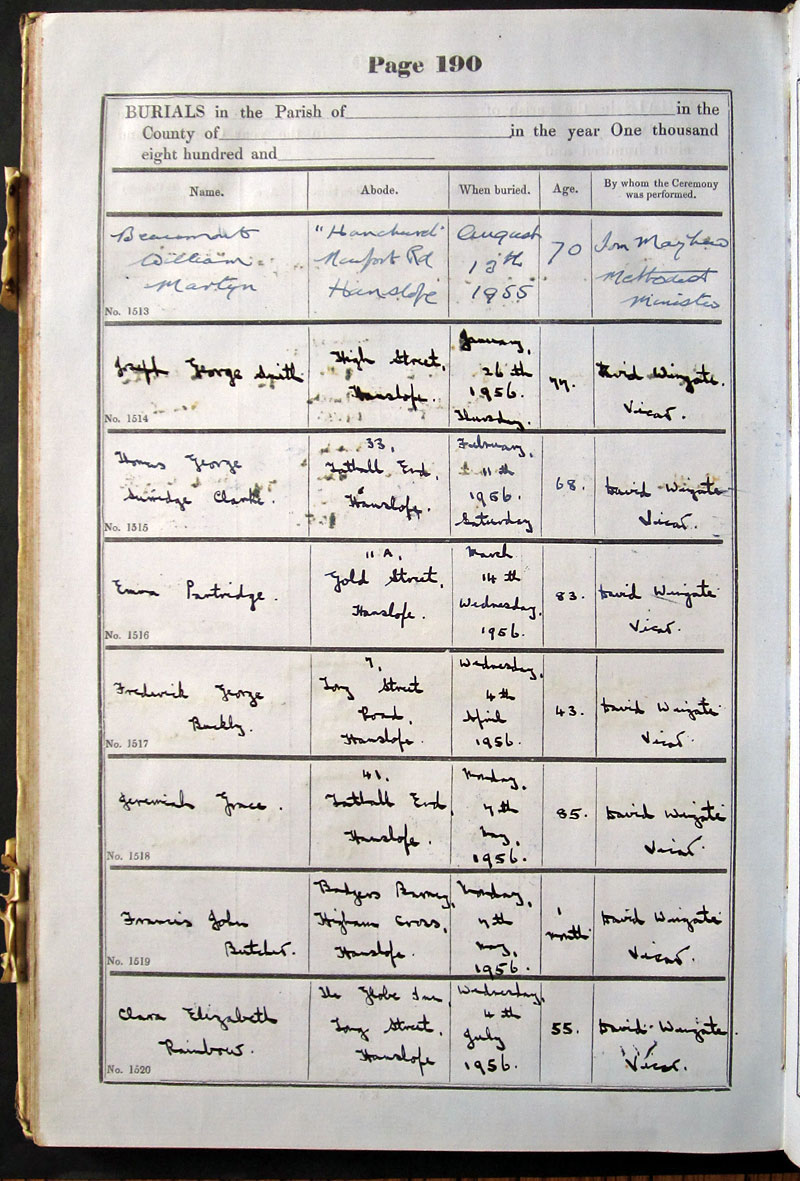 Page 190
BURIALS in the Parish of in the
County of in the year One thousand
eight hundred and
Name. Abode. When buried. Age. By whom the Ceremony was performed.
Beaumont
William
Martyn
No. 1513
Newport Rd
Hanslope
August
13th
1955
70
Tom Mayhew
Methodist
Minister
Joseph George Smith
No. 1514
High Street,
Hanslope.
January,
26th
1956.
Thursday.
77.
David Wingate.
Vicar.
Thomas George
Surridge Clarke.
No. 1515
33,
Tathall End,
Hanslope.
February,
11th
1956.
Saturday
68.
David Wingate
Vicar.
Emma Partridge.
No. 1516
11A,
Gold Street,
Hanslope.
March
14th
Wednesday,
1956.
83.
David Wingate
Vicar.
Frederick George
Buckby.
No. 1517
7,
Long Street
Road,
Hanslope.
Wednesday,
4th
April
1956.
43.
David Wingate
Vicar.
Jeremiah Grace.
No. 1518
41,
Tathall End,
Hanslope.
Monday,
7th
May,
1956.
85.
David Wingate
Vicar.
Francis John
Butcher.
No. 1519
Badgers
Higham Cross,
Hanslope.
Monday,
7th
May,
1956.
1
month
David Wingate
Vicar.
Clara Elizabeth
Rainbow.
No. 1520
The Globe Inn,
Long Street.
Hanslope
Wednesday,
4th
July
1956.
55.
David Wingate.
Vicar.